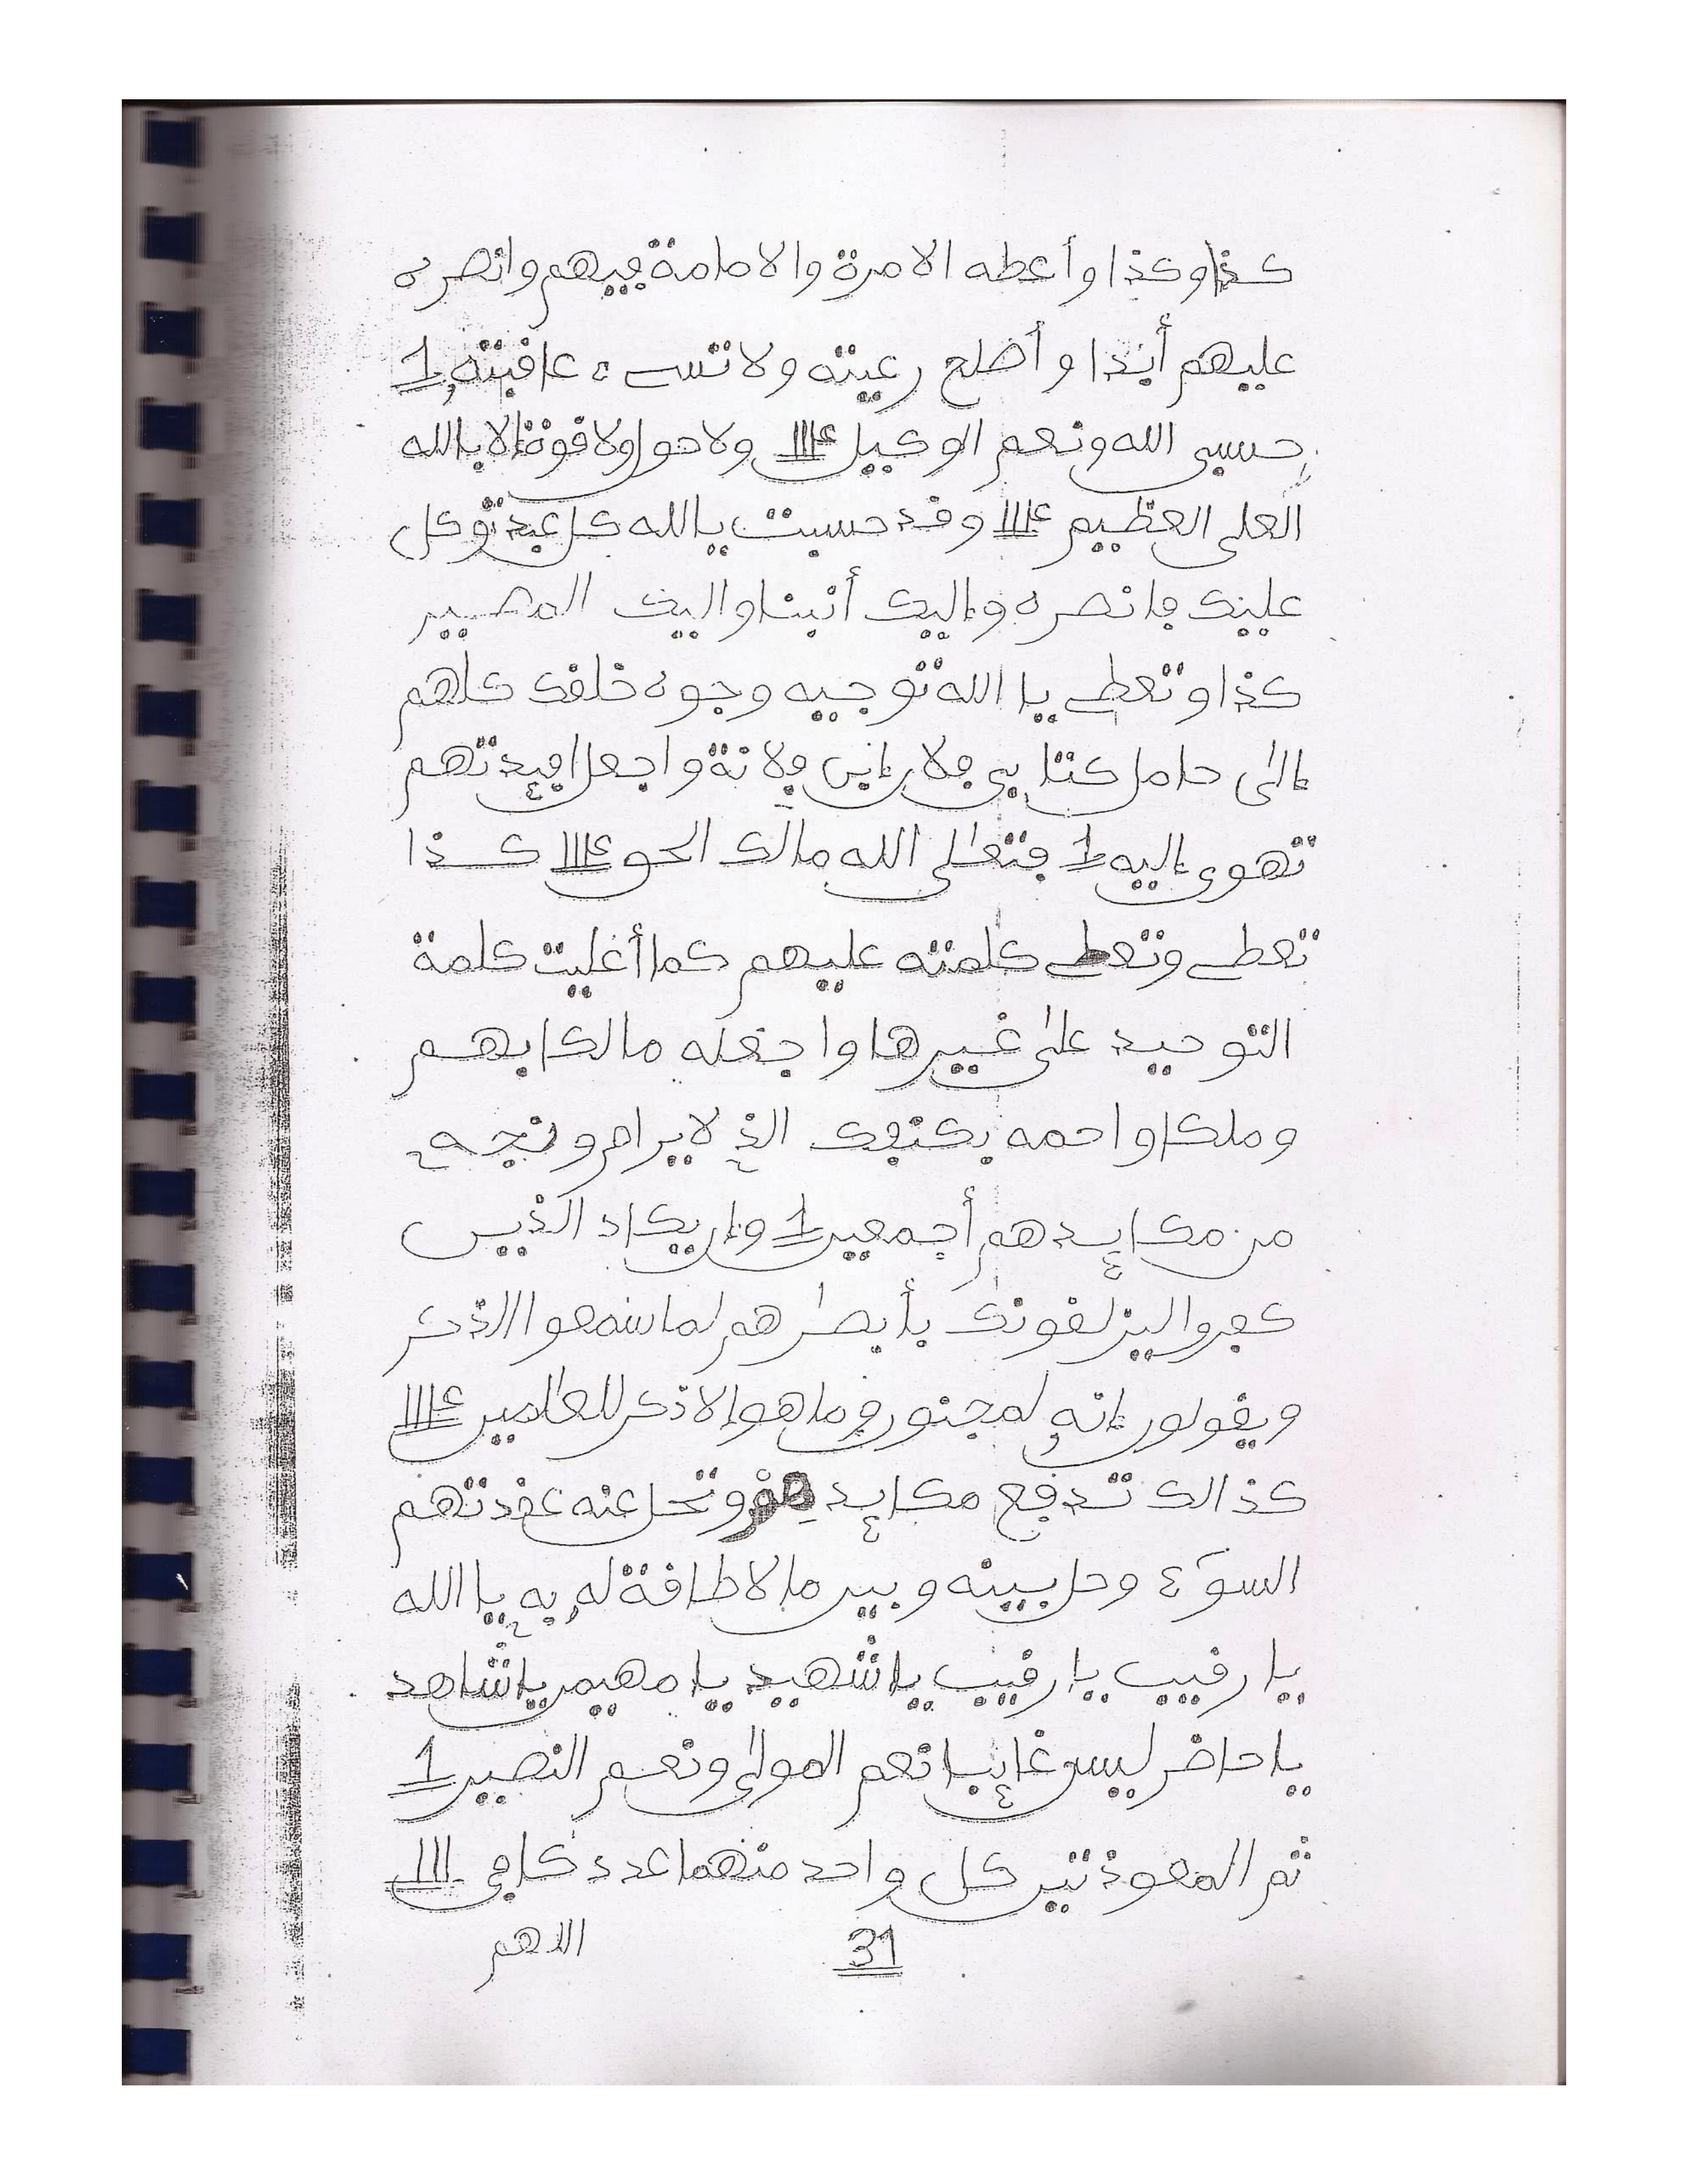 كذا وكذا وأعطه الامرة والامامة فيهم وانصره
عليهم أبدا وأصلح رعيته ولا تسيء عاقبته 1
حسبي الله ونعم الوكيل ولا حول ولا قوة إلا بالله
العلي العظيم وقد حسبت يا الله كل عبد توكل
عليك فانصره وإليك أنبنا واليك المصير
كذا وتعطي يا الله توجيه وجوه خلقك كلهم
إلى حامل كتابي فلان إبن فلانة واجعل افيدتهم
تهوى إليه 1 فتعلى الله مالك الحق كذا
تعطي وتعطي كلمته عليهم كما أعليت كلمة
التوحيد على غيرها واجعله مالكا بهم
وملكا واحمه بكنفك الذي لا يرام ونجه
من مكايدهم أجمعين 1 وإن يكاد الذين
كفروا ليزلقونك بأبصرهم لما سمعوا الذكر
ويقولون إنه لمجنون وما هو إلا ذكر للعلمين
كذالك تدفع مكايد هم وتحل عنه عقدتهم
السوء وحل بينه وبين ما لا طاقة له به يا الله
يا رقيب يا رقيب يا شهيد يا مهيمن يا شاهد
يا حاضر ليس غايبا نعم المولى ونعم النصير 1
ثم المعوذتين كل واحد منهما عدد كافي III
31
اللهم